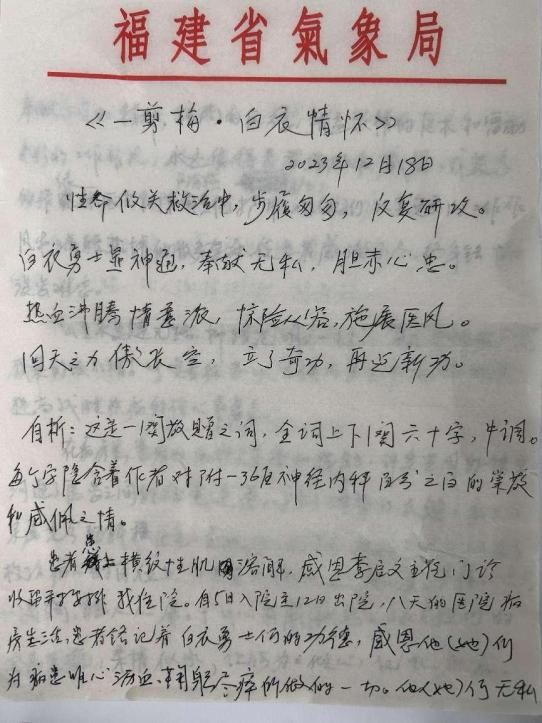 福建省氣象局
《一剪梅·白衣情怀》
2023年12月18日
性命攸关救治中,步履匆匆,反复研攻。
白衣勇士显神通,奉献无私,胆赤心忠。
热血沸腾情意浓,惊险从容,施展医风。
回天之力傲长空,立了奇功,再迈新功。
自析:这是一阕放赠之词,全词上下阕六十字,中调。
每个字隐含着作者对附一36层神经内科 之白的崇敬
和感佩之情。
患者 横纹性肌溶解,感恩李启文主任门诊
收留并安排我住院。自5日入院至12日出院,八天的医院病
房生活,患者铭记着白衣勇士们的功德,感恩他(她)们
为病患呕心沥血、鞠躬尽瘁所做的一切。他(她)们无私